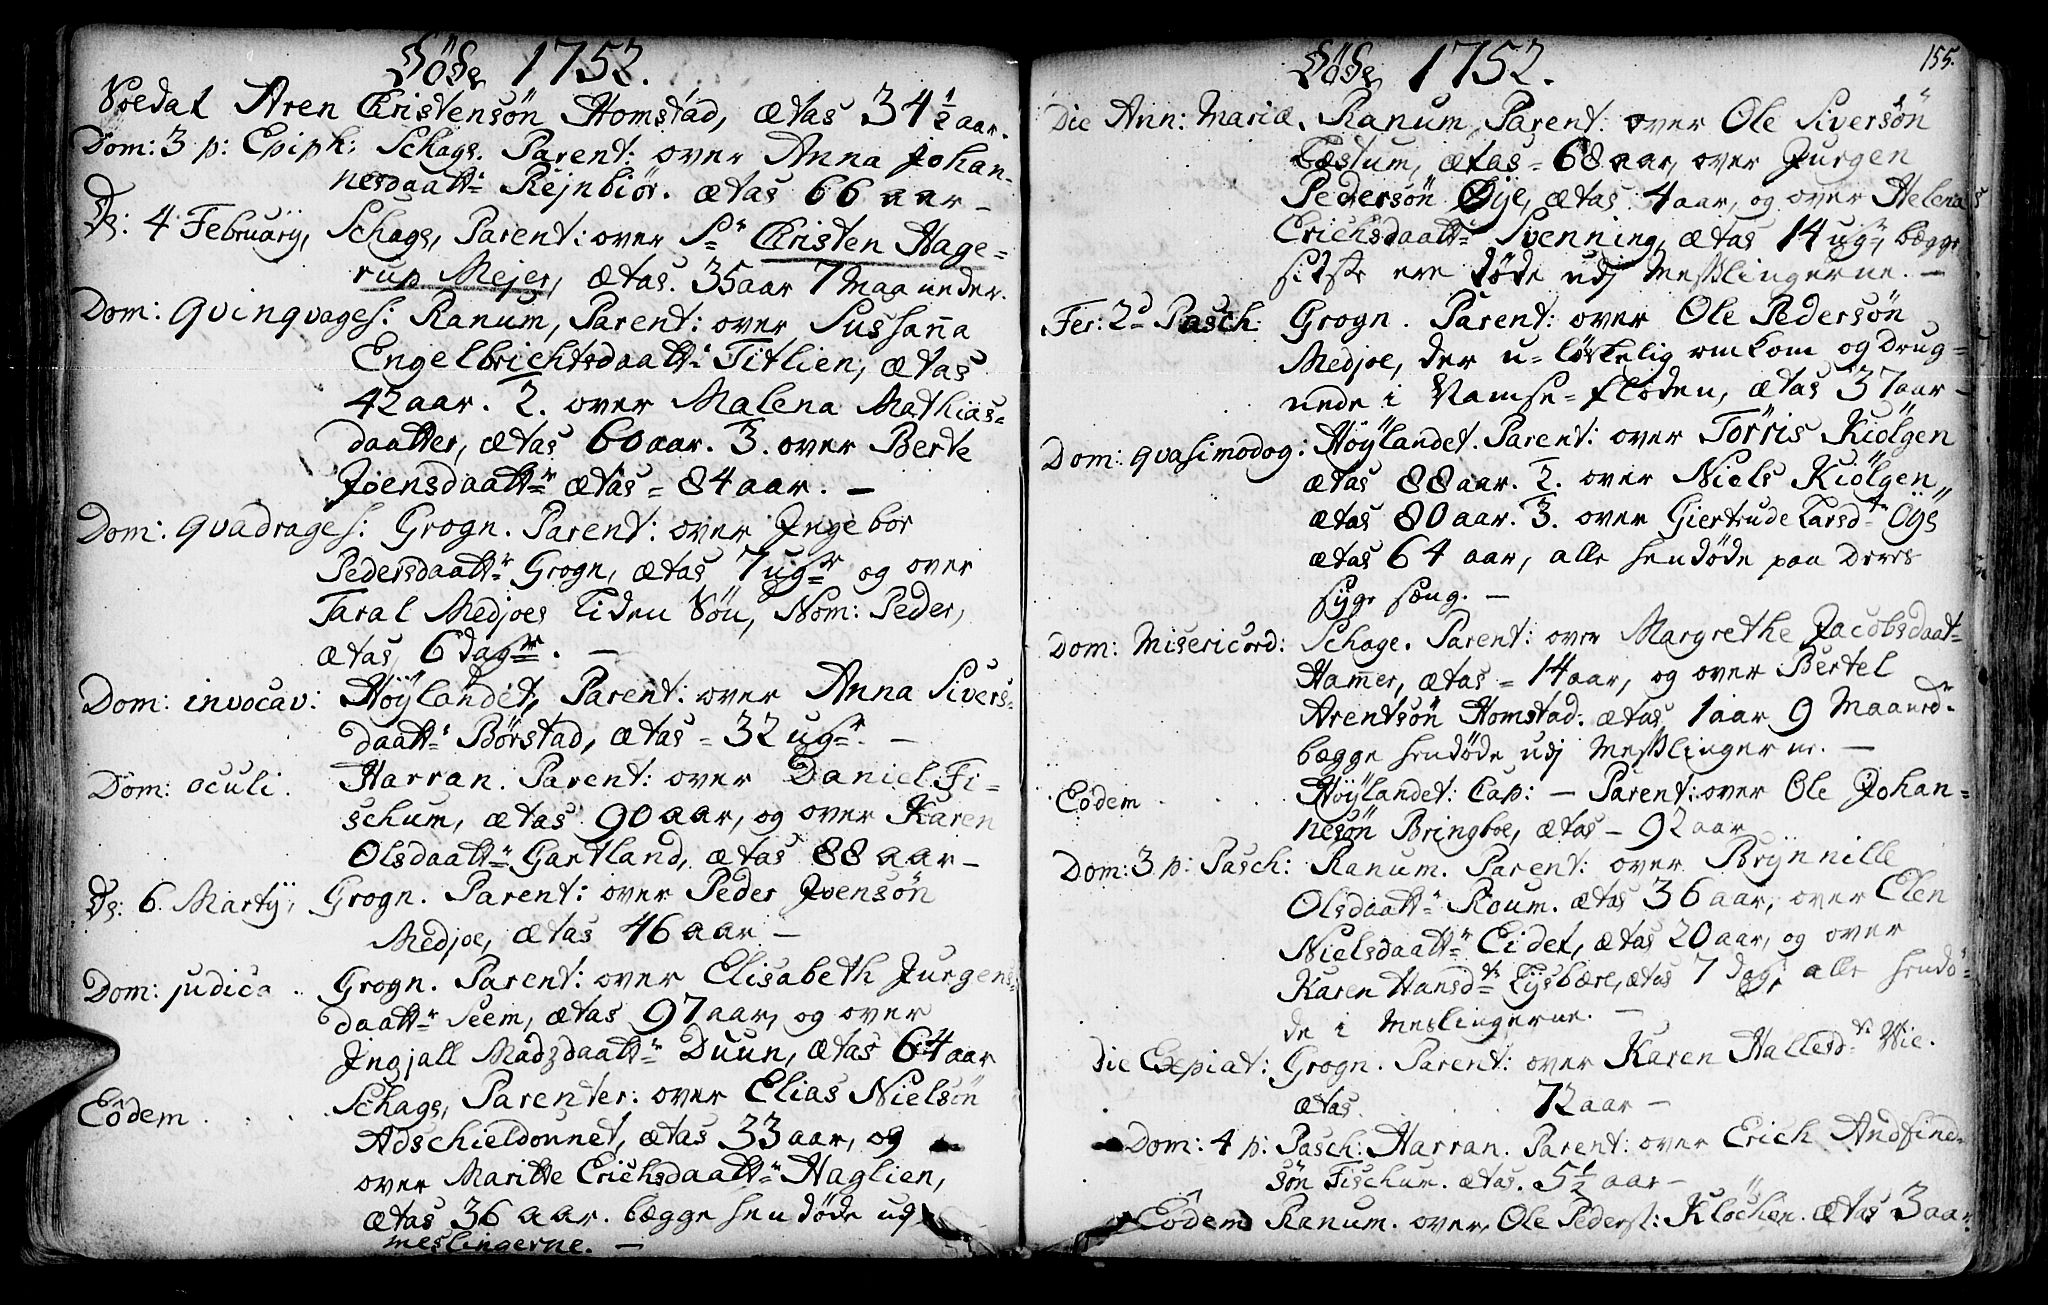 Döde 1752.
Soldat Aren Christensön Homstad, ætas 34 1/2 aar.
Dom: 3 p: Epiph: Schage. Parent: over Anna Johan-
nesdaattr Rejnbiör. ætas 66 aar -
Ds: 4 Februarij, Schage, Parent: over Sr Christen Hage-
rup Mejer, ætas. 35 aar 7 Maaneder.
Dom: Qvinqvages: Ranum, Parent: over Sussanna
Engelbrichtsdaattr Titlien, ætas
42 aar. 2. over Malena Mathias-
daatter, ætas 60 aar. 3. over Berte
Joensdaattr ætas = 84 aar. -
Dom: Qvadrages: Grogn. Parent: over Ingebor
Pedersdaattr Grogn, ætas 7 ugr og over
Taral Medjoes liden Sön, Nom: Peder,
ætas, 6 dagr. -
Dom: invocav: Höylandet, Parent: over Anna Sivers-
daattr Börstad, ætas = 32 ugr. -
Dom: oculi. Harran. Parent: over Daniel Fi-
schum, ætas 90 aar, og over Karen
Olsdaattr Gartland, ætas 88 aar -
Ds: 6. Martij, Grogn. Parent: over Peder Joensön
Medjoe, ætas 46 aar -
Dom: judica. Grogn. Parent: over Elisabeth Jurgens-
daattr Seem, ætas 97 aar, og over
Ingjall Madzdaattr Duun, ætas 64 aar
Eodem . . . Schage, Parenter: over Elias Nielsön
Adschieldonnet, ætas 33 aar, og
over Maritte Erichsdaattr Haglien,
ætas 36 aar. begge hendöde udj
meslingerne. -
Döde 1752.
155.
Die Ann: Mariæ, Ranum, Parent: over Ole Siversön
Læstum, ætas = 68 aar, over Jurgen
Pedersön Øye, ætas. 4 aar, og over Helena
Erichsdaattr Svenning, ætas 14 ugr, begge
sidste ere döde udj Messlingerne. -
Fer: 2d Pasch: Grogn. Parent: over Ole Pedersön
Medjoe, der u-lökkelig omkom og drug-
nede i Namse-floden, ætas 37 aar -
Dom: qvasimodog: Höylandet. Parent: over Törris Kiölgen
ætas 88 aar. 2. over Niels Kiölgen
ætas 80 aar. 3. over Giertrude Larsdtr Öye
ætas 64 aar, alle hendöde paa deres
syge sæng. -
Dom: Misericord: Schage. Parent: over Margrethe Jacobsdaat-
Hamer, ætas = 14 aar, og over Bertel
Arentsön Homstad. ætas, 1 aar 9 Maandr.
begge hendöde udj Messlingerne. -
Eodem . . . Höylandet: Cap: - Parent: over Ole Johan-
nesön Bringboe, ætas - 92 aar
Dom: 3 p: Pasch: Ranum. Parent: over Brynnille
Olsdaattr Roum. ætas 36 aar, over Elen
Nielsdaattr Eidet, ætas 20 aar, og over
Karen Hansdtr Lysbære, ætas 7 dagr alle hendö-
de i Meslingerne. -
Die Expiat: Grogn. Parent: over Karen Hallesdtr Wie.
ætas. 72 aar -
Dom: 4 p: Pasch: Harran. Parent: over Erich Andfind-
sön Fischum. ætas. 5 1/2 aar -
Eodem Ranum. over Ole Peders: Klöchen. ætas 3 aar.